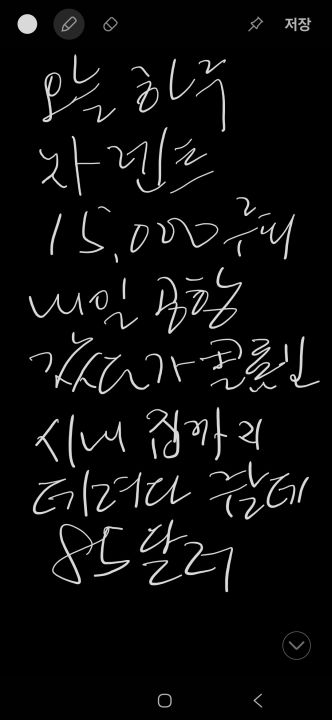 저장
오늘 하루
차 렌트
15,000 루피
내일 공항
갔다가 콜롬보
시내 집까지
데려다 주는데
85달러